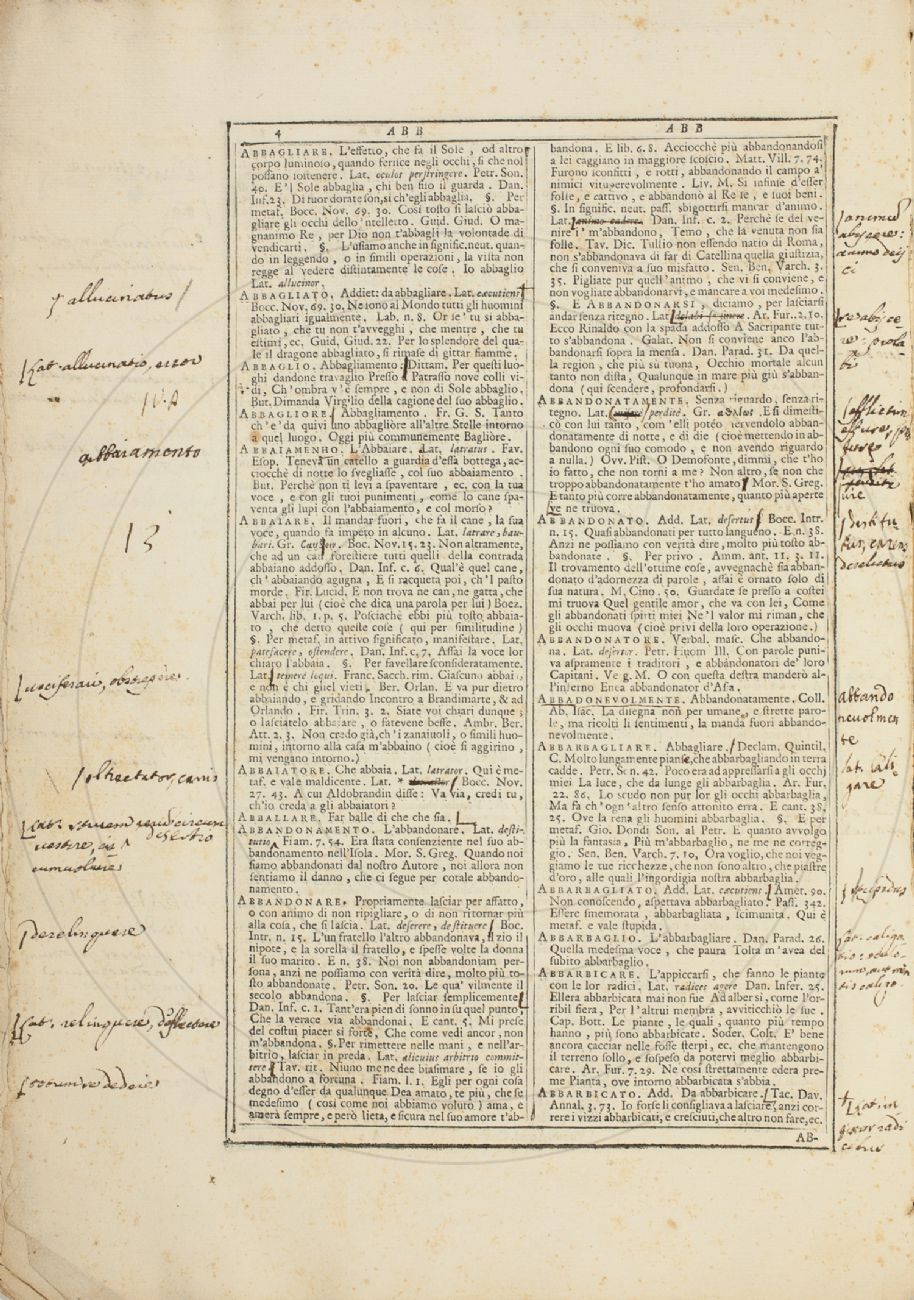 4 ABB ABB
ABBAGLIARE. L'effetto, che fa il Sole, od altro
corpo luminoso, quando ferisce negli occhi, sì che nol
possano sostenere. Lat. oculos perstringere. Petr. Son.
40. E 'l Sole abbaglia, chi ben fiso il guarda. Dan.
Inf. 23. Di fuor dorate son, sì ch'egli abbaglia. §. Per
metaf. Bocc. Nov. 69. 30. Così tosto si lasciò abba-
gliare gli occhi dello 'ntelletto. Guid. Giud. O ma-
gnanimo Re, per Dio non t'abbagli la volontade di
vendicarti. §. L'usiamo anche in signific. neut. quan-
do in leggendo, o in simili operazioni, la vista non
regge al vedere distintamente le cose. Io abbaglio
Lat. allucinor.
ABBAGLIATO, Addiet: da abbagliare. Lat. cæcutiens
Bocc. Nov. 69. 30. Ne sono al Mondo tutti gli huomini
abbagliati igualmente. Lab. n. 8. Or se' tu sì abba-
gliato, che tu non t'avvegghi, che mentre, che tu
estimi, ec. Guid. Giud. 22. Per lo splendore del qua-
le il dragone abbagliato, si rimase di gittar fiamme.
ABBAGLIO. Abbagliamento. Dittam. Per questi luo-
ghi dandone travaglio Presso a Patrasso nove colli vi-
di, Ch'ombra v'è sempre, e non di Sole abbaglio.
But. Dimanda Virgilio della cagione del suo abbaglio.
ABBAGLIORE. Abbagliamento. Fr. G. S. Tanto
ch'e 'da quivi uno abbagliòre all'altre Stelle intorno
a quel luogo. Oggi più communemente Bagliòre.
ABBAIAMENHO. L'Abbaiare. Lat. latratus. Fav.
Esop. Teneva un catello a guardia d'essa bottega, ac-
ciocchè di notte lo svegliasse, col suo abbaiamento.
But. Perchè non ti levi a spaventare, ec. con la tua
voce, e con gli tuoi punimenti, come lo cane spa-
venta gli lupi con l'abbaiamento, e col morso?
ABBAIARE. Il mandar fuori, che fa il cane, la sua
voce, quando fa impeto in alcuno. Lat. latrare, bau-
bari. Gr. Boc. Nov. 15. 23. Non altramente,
che ad un can forestiere tutti quelli della contrada
abbaiano addosso. Dan. Inf. c. 6. Qual'è quel cane,
ch'abbaiando agugna, E si racqueta poi, ch'l pasto
morde. Fir. Lucid. E non trova ne can, ne gatta, che
abbai per lui (cioè che dica una parola per lui) Boez.
Varch. lib. 1. p. 5. Posciachè ebbi più tosto abbaia-
to, che detto queste cose (qui per similitudine)
§. Per metaf. in attivo significato, manifestare. Lat.
patefacere, ostendere. Dan. Inf. c. 7. Assai la voce lor
chiaro l'abbaia. §. Per favellare sconsideratamente.
Lat. temerè loqui. Franc. Sacch. rim. Ciascuno abbai,
e non è chi gliel vieti. Ber. Orlan. E va pur dietro
abbaiando, e gridando Incontro a Brandimarte, & ad
Orlando. Fir. Trin. 3. 2. Siate voi chiari dunque;
o lasciatelo abbaiare, o fatevene beffe. Ambr. Ber.
Att. 2. 3. Non credo già, ch'i zanaiuoli, o simili huo-
mini, intorno alla casa m'abbaino (cioè si aggirino,
mi vengano intorno.)
ABBAIATORE. Che abbaia. Lat. latrator. Qui è me-
taf. e vale maldicente. Lat. * Bocc. Nov.
27. 43. A cui Aldobrandin disse: Va via, credi tu,
ch'io creda a gli abbaiatori?
ABBALLARE. Far balle di che che sia.
ABBANDONAMENTO. L'abbandonare. Lat. desti-
tutio. Fiam. 7. 54. Era stata consenziente nel suo ab-
bandonamento nell'Isola. Mor. S. Greg. Quando noi
siamo abbandonati dal nostro Autore, noi allora non
sentiamo il danno, che ci segue per cotale abbando-
namento.
ABBANDONARE. Propriamente lasciar per affatto,
o con animo di non ripigliare, o di non ritornar più
alla cosa, che si lascia. Lat. deserere, destituere. Boc.
Intr. n. 15. L'un fratello l'altro abbandonava, il zio il
nipote, e la sorella il fratello, e spesse volte la donna
il suo marito. E n. 38. Noi non abbandoniam per-
sona, anzi ne possiamo con verità dire, molto più to-
sto abbandonate. Petr. Son. 20. Le qua' vilmente il
secolo abbandona. §. Per lasciar semplicemente
Dan. Inf. c. 1. Tant'era pien di sonno in su quel punto
Che la verace via abbandonai. E cant. 5. Mi prese
del costui piacer sì forte, Che come vedi ancor, non
m'abbandona. §. Per rimettere nelle mani, e nell'ar-
bitrio, lasciar in preda. Lat. alicuius arbitrio commit-
tere. Tav. rit. Niuno me ne dee biasimare, se io gli
abbandono a fortuna. Fiam. l. 1. Egli per ogni cosa
degno d'esser da qualunque Dea amato, te piu, che se
medesimo (così come noi abbiamo voluto) ama, e
amerà sempre, e però lieta, e sicura nel suo amore t'ab-
bandona. E lib. 6. 8. Acciocchè più abbandonandosi
a lei caggiano in maggiore scoscio. Matt. Vill. 7. 74.
Furono sconfitti, e rotti, abbandonando il campo a'
nimici vituperevolmente. Liv. M. Si infinse d'esser
folle, e cattivo, e abbandonò al Re se, e suoi beni.
§. In signific. neut. pass. sbigottirsi mancar d'animo.
Lat. Dan. Inf. c. 2. Perchè se del ve-
nire i' m'abbandono, Temo, che la venuta non sia
folle. Tav. Dic. Tullio non essendo natio di Roma,
non s'abbandonava di far di Catellina quella giustizia,
che si conveniva a suo misfatto. Sen. Ben. Varch. 3.
35. Pigliate pur quell'animo, che vi si conviene, e
non vogliate abbandonarvi, e mancare a voi medesimo.
§. E ABBANDONARSI, diciamo, per lasciarsi
andar senza ritegno. Lat. Ar. Fur. 2. 10.
Ecco Rinaldo con la spada addosso A Sacripante tut-
to s'abbandona. Galat. Non si conviene anco l'ab-
bandonarsi sopra la mensa. Dan. Parad. 31. Da quel-
la region, che più su tuona, Occhio mortale alcun
tanto non dista, Qualunque in mare più giù s'abban-
dona (qui scendere, profondarsi.)
ABBANDONATAMENTE. Senza riguardo, senza ri-
tegno. Lat. perditè. Gr. E si dimesti-
cò con lui tanto, com'elli potéo servendolo abban-
donatamente di notte, e di die (cioè mettendo in ab-
bandono ogni suo comodo, e non avendo riguardo
a nulla.) Ovv. Pist. O Demofonte, dimmi, che t'ho
io fatto, che non torni a me? Non altro, se non che
troppo abbandonatamente t'ho amato. Mor. S. Greg.
E tanto più corre abbandonatamente, quanto più aperte
ne truova.
ABBANDONATO. Add. Lat. desertus. Bocc. Intr.
n. 15. Quasi abbandonati per tutto languieno. E n. 38.
Anzi ne possiamo con verità dire, molto più tosto ab-
bandonate. §. Per privo. Amm. ant. 11. 3. 11.
Il trovamento dell'ottime cose, avvegnachè sia abban-
donato d'adornezza di parole, assai è ornato solo di
sua natura. M. Cino. 50. Guardate se presso a costei
mi truova Quel gentile amor, che va con lei, Come
gli abbandonati spirti miei Ne'l valor mi riman, che
gli occhi muova (cioè privi della loro operazione.)
ABBANDONATORE. Verbal. masc. Che abbando-
na. Lat. desertor. Petr. Huom Ill. Con parole puni-
va aspramente i traditori, e abbandonatori de' loro
Capitani. Ve g. M. O con questa destra manderò al-
l'inferno Enea abbandonator d'Asia.
ABBADONEVOLMENTE. Abbandonatamente. Coll.
Ab. Isac. La disegna non per umane, e strette paro-
le, ma ricolti li sentimenti, la manda fuori abbando-
nevolmente.
ABBARBAGLIARE. Abbagliare. Declam. Quintil.
C. Molto lungamente pianse, che abbarbagliando in terra
cadde. Petr. Son. 42. Poco era ad appressarsi a gli occhj
miei La luce, che da lunge gli abbarbaglia. Ar. Fur.
22. 86. Lo scudo non pur lor gli occhi abbarbaglia,
Ma fa ch'ogn'altro senso attonito erra. E cant. 38.
25. Ove la rena gli huomini abbarbaglia. §. E per
metaf. Gio. Dondi Son. al Petr. E quanto avvolgo
più la fantasia, Più m'abbarbaglio, ne me ne correg-
gio. Sen. Ben. Varch. 7. 10. Ora voglio, che noi veg-
giamo le tue ricchezze, che non sono altro, che piastre
d'oro, alle quali l'ingordigia nostra abbarbaglia.
ABBARBAGLIATO. Add. Lat. cæcutiens. Amer. 90.
Non conoscendo, aspettava abbarbagliato. Pass. 342.
Essere smemorata, abbarbagliata, scimunita. Qui è
metaf. e vale stupida.
ABBARBAGLIO. L'abbarbagliare. Dan. Parad. 26.
Quella medesma voce, che paura Tolta m'avea del
subito abbarbaglio.
ABBARBICARE. L'appiccarsi, che fanno le piante
con le lor radici. Lat. radices agere Dan. Infer. 25.
Ellera abbarbicata mai non fue Ad alber sì, come l'or-
ribil fiera, Per l'altrui membra, avviticchiò le sue.
Cap. Bott. Le piante, le quali, quanto più tempo
hanno, più sono abbarbicate. Soder. Colt. E' bene
ancora cacciar nelle fosse sterpi, ec. che mantengono
il terreno sollo, e sospeso da potervi meglio abbarbi-
care. Ar. Fur. 7. 29. Ne così strettamente edera pre-
me Pianta, ove intorno abbarbicata s'abbia.
ABBARBICATO. Add. Da abbarbicare. Tac. Dav.
Annal. 3. 73. Io forse li consigliava a lasciare, anzi cor-
rere i vizzi abbarbicati, e cresciuti, che altro non fare, ec.
AB-
allucinatus
Lat. allucinatio, error
abbaiamento
13
vociferari, obstrepere.
obtrectator, canis
derelinquere
Lat. relinquere,
animum
abbando
nevolmen
te
Lat. cali-
gare